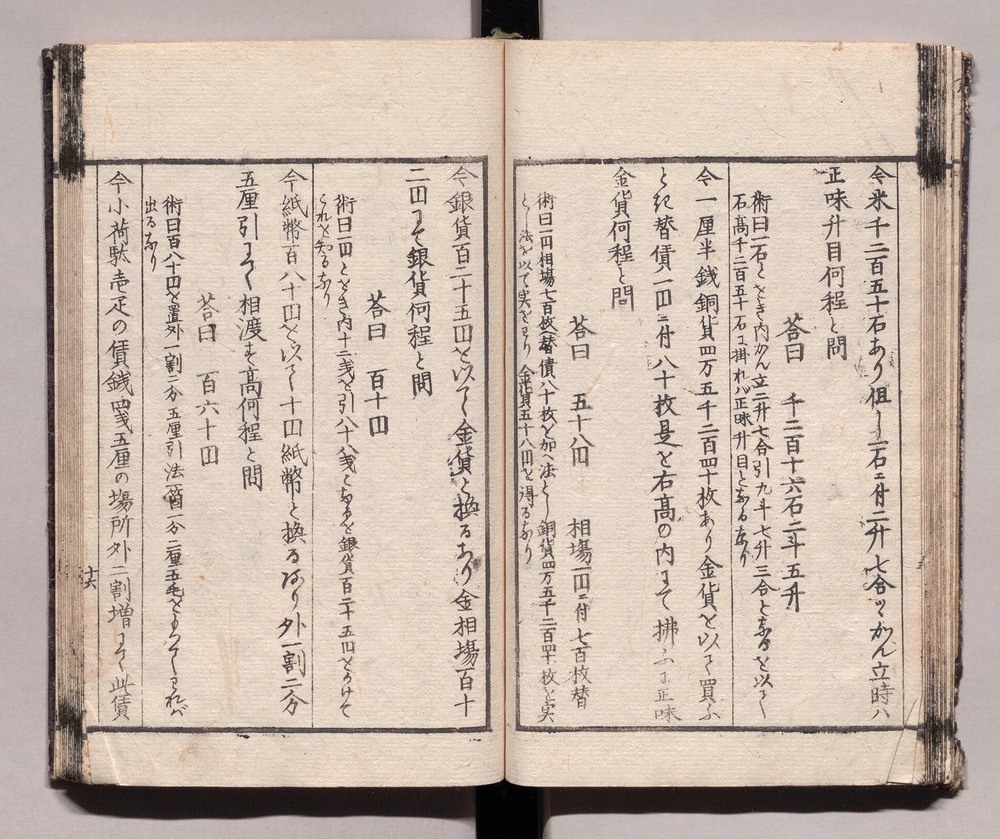 今米千二百五十石あり但し一石ニ付二升七合ツヽかん立時ハ
正味升目何程と問
荅曰　千二百十六石二斗五升
術曰一石とをき内かん立二升七合引九斗七升三合と成るを以て
石髙千二百五十石に掛れバ正味升目となる也
今一厘半銭銅貨四万五千二百四十枚あり金貨を以て買ふ
と紀替賃一円ニ付八十枚是を右髙の内にて拂ふに正味
金貨何程と問
荅曰　五十八円　相場一円ニ付七百枚替
術曰一円相場七百枚替賃八十枚を加へ法とし銅貨四万五千二百四十枚を実
とし法を以て実をわり金貨五十八円を得るなり
今銀貨百二十五円を以て金貨と換るあり金相場百十
二円にて銀貨何程と問
荅曰　百十円
術曰一円とをき内十二銭を引八十八銭となるを銀貨百二十五円とかけて
これを知るなり
今紙幣百八十円を以て十円紙幣と換るあり外一割二分
五厘引にて相渡す髙何程と問
荅曰　百六十円
術曰百八十円を置外一割二分五厘引法一箇一分二厘五毛をもつてわれバ
出るなり
今小荷駄壱疋の賃銭四銭五厘の場所外二割増にて此賃
十六